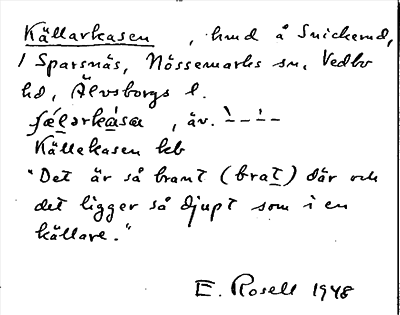 Källarkasen , hmd å Snickerud,
/ Sparsnäs, Nössemarks sn, Vedbo
hd, Älvsborgs l.
, äv.
Källekasen kb
"Det är så brant (brat) där och
det ligger så djupt som i en
källare."
E. Rosell 1948